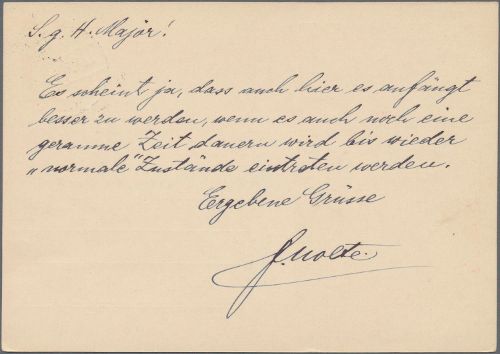 S. g. H. Major!
Es scheint ja, dass auch hier es anfängt
besser zu werden, wenn es auch noch eine
geraume Zeit dauern wird bis wieder
„normale“ Zustände eintreten werden.
Ergebene Grüsse